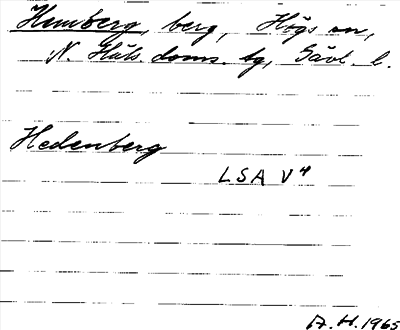 Hemberg, berg, Högs sn,
N. Häls. doms. tg, Gävl. l.
Hedenberg
LSA V4
A.H. 1965